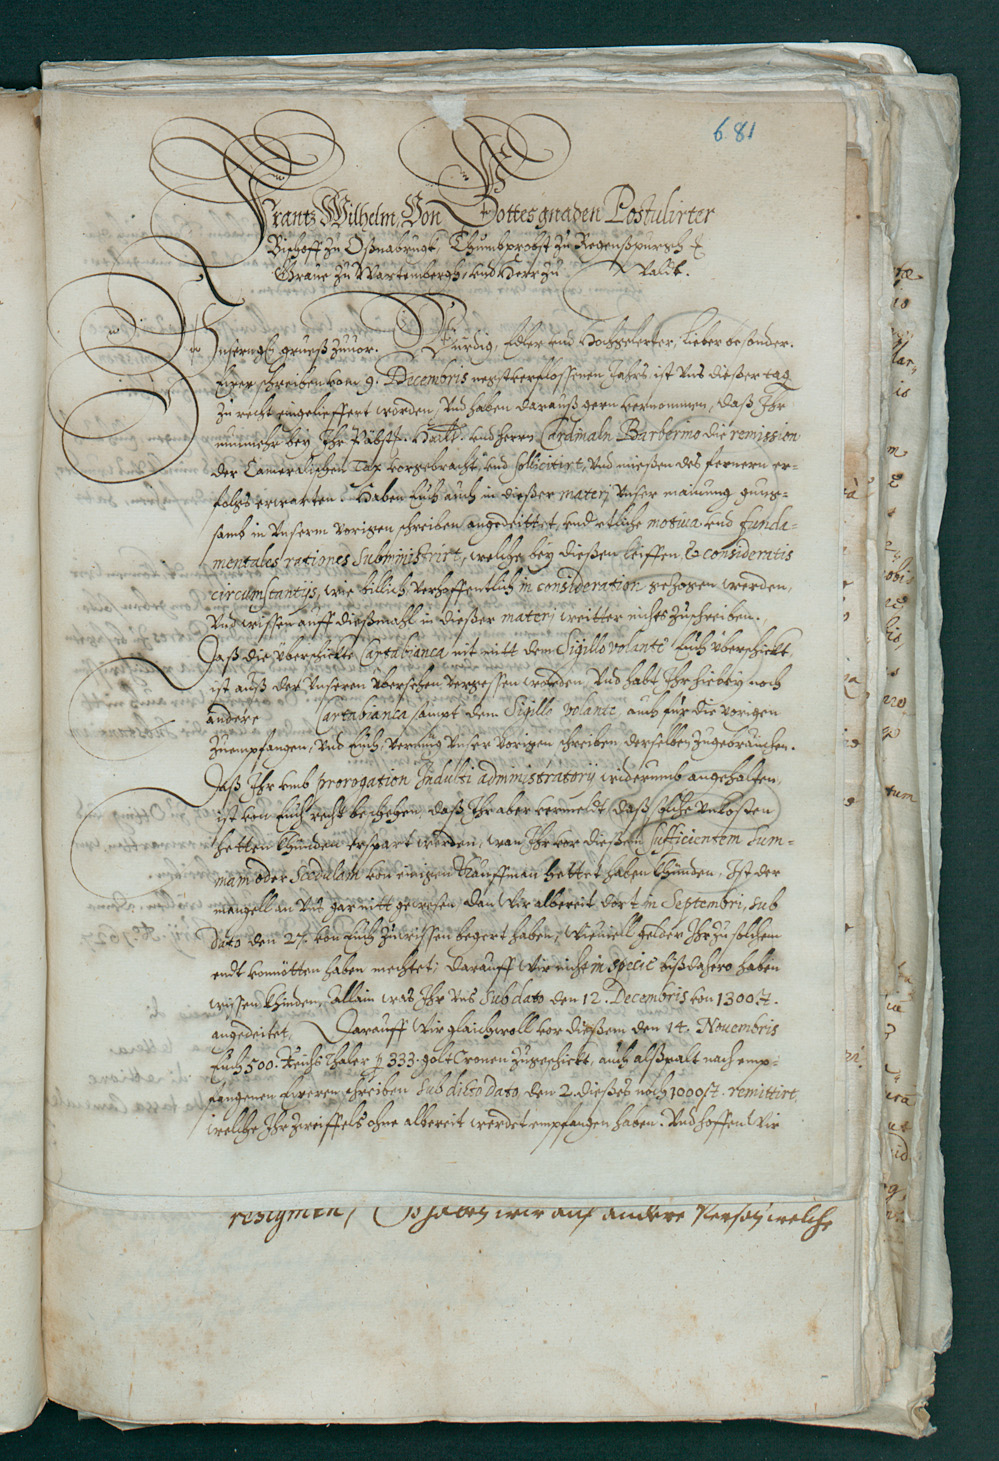 681
Frantz Wilhelm, Von Gottes gnaden Postulirter
Bischoff zu Oßnabrugk, Thumbprobst zu Regenßpurgh
Graue zu Wartembergh, und Herr zu Waldt.
Unsern gruß zuuor. Würdig, Edler und Hochgelerter, lieber besonder.
Ewer schreiben vom 9. Decembris negstverflossenen Jahrs ist Uns dießer tag
zu recht eingelieffert worden, Und haben darauß gern vernommen, daß Ihr
nunmehr bey Ihr Päbstl. Haylt. und herrn Cardinaln Barberino die remission
der Cameralischen Tax vorgebracht, und sollicitirt, Und müeßen des fernern er-
folgs erwarten. Haben Euch auch in dießer materj Unser mainung gnug-
samb in Unserm vorigen schreiben angedeittet, und etliche motiua und funda-
mentales rationes subministrirt, welche bey dießen leiffen, et consideratis
circumstantijs, wie billich, verhoffentlich in consideration gezogen werden,
Und wissen auff dießmahl in dießer materj weitter nichts zuschreiben.
Daß die überschickte Cartabianca nit mitt dem Sigillo volante Euch überschickt,
ist auß der Unseren übersehen vergessen worden, Und habt Ihr hiebey noch
andere Cartabianca sampt dem Sigillo volante, auch für die vorigen
zuempfangen, Und Euch, vermüg Unser vorigen schreiben derselben zugebrauchen.
Daß Ihr umb prorogation Indulti administratorij widerumb angehalten,
ist von Euch recht beschehen, daß Ihr aber vermeldt, daß solche unkosten
hetten khünden erspart werden, wan Ihr vor dießem sufficientem sum-
mam oder Scedulam von einigen Kauffman hettet haben khünden, Ist der
mangell an Uns gar nitt gewesen, dan Wir albereit dort in Septembri, sub
dato den 27. von Euch zuwissen begert haben, wieuiell gelder Ihr zu solchem
endt vonnötten haben mechtet, darauff wir nicht in specie biß dahero haben
wissen khinden, allain was Ihr Uns sub dato den 12. Decembris von 1300 fl.
angedeitet, Darauff Wir gleichwoll vor dießem den 14. Nouembris
Euch 500. Reichs Thaler p 333. golt Cronen zugeschickt, auch alßbalt nach emp-
fangenen Eweren schreiben sub dicto dato den 2. dießes noch 1000 fl. remittirt,
welche Ihr zweiffels ohne albereit werdet empfangen haben. Und hoffen Wir
resigniren, So haben wir auf andere Person welche